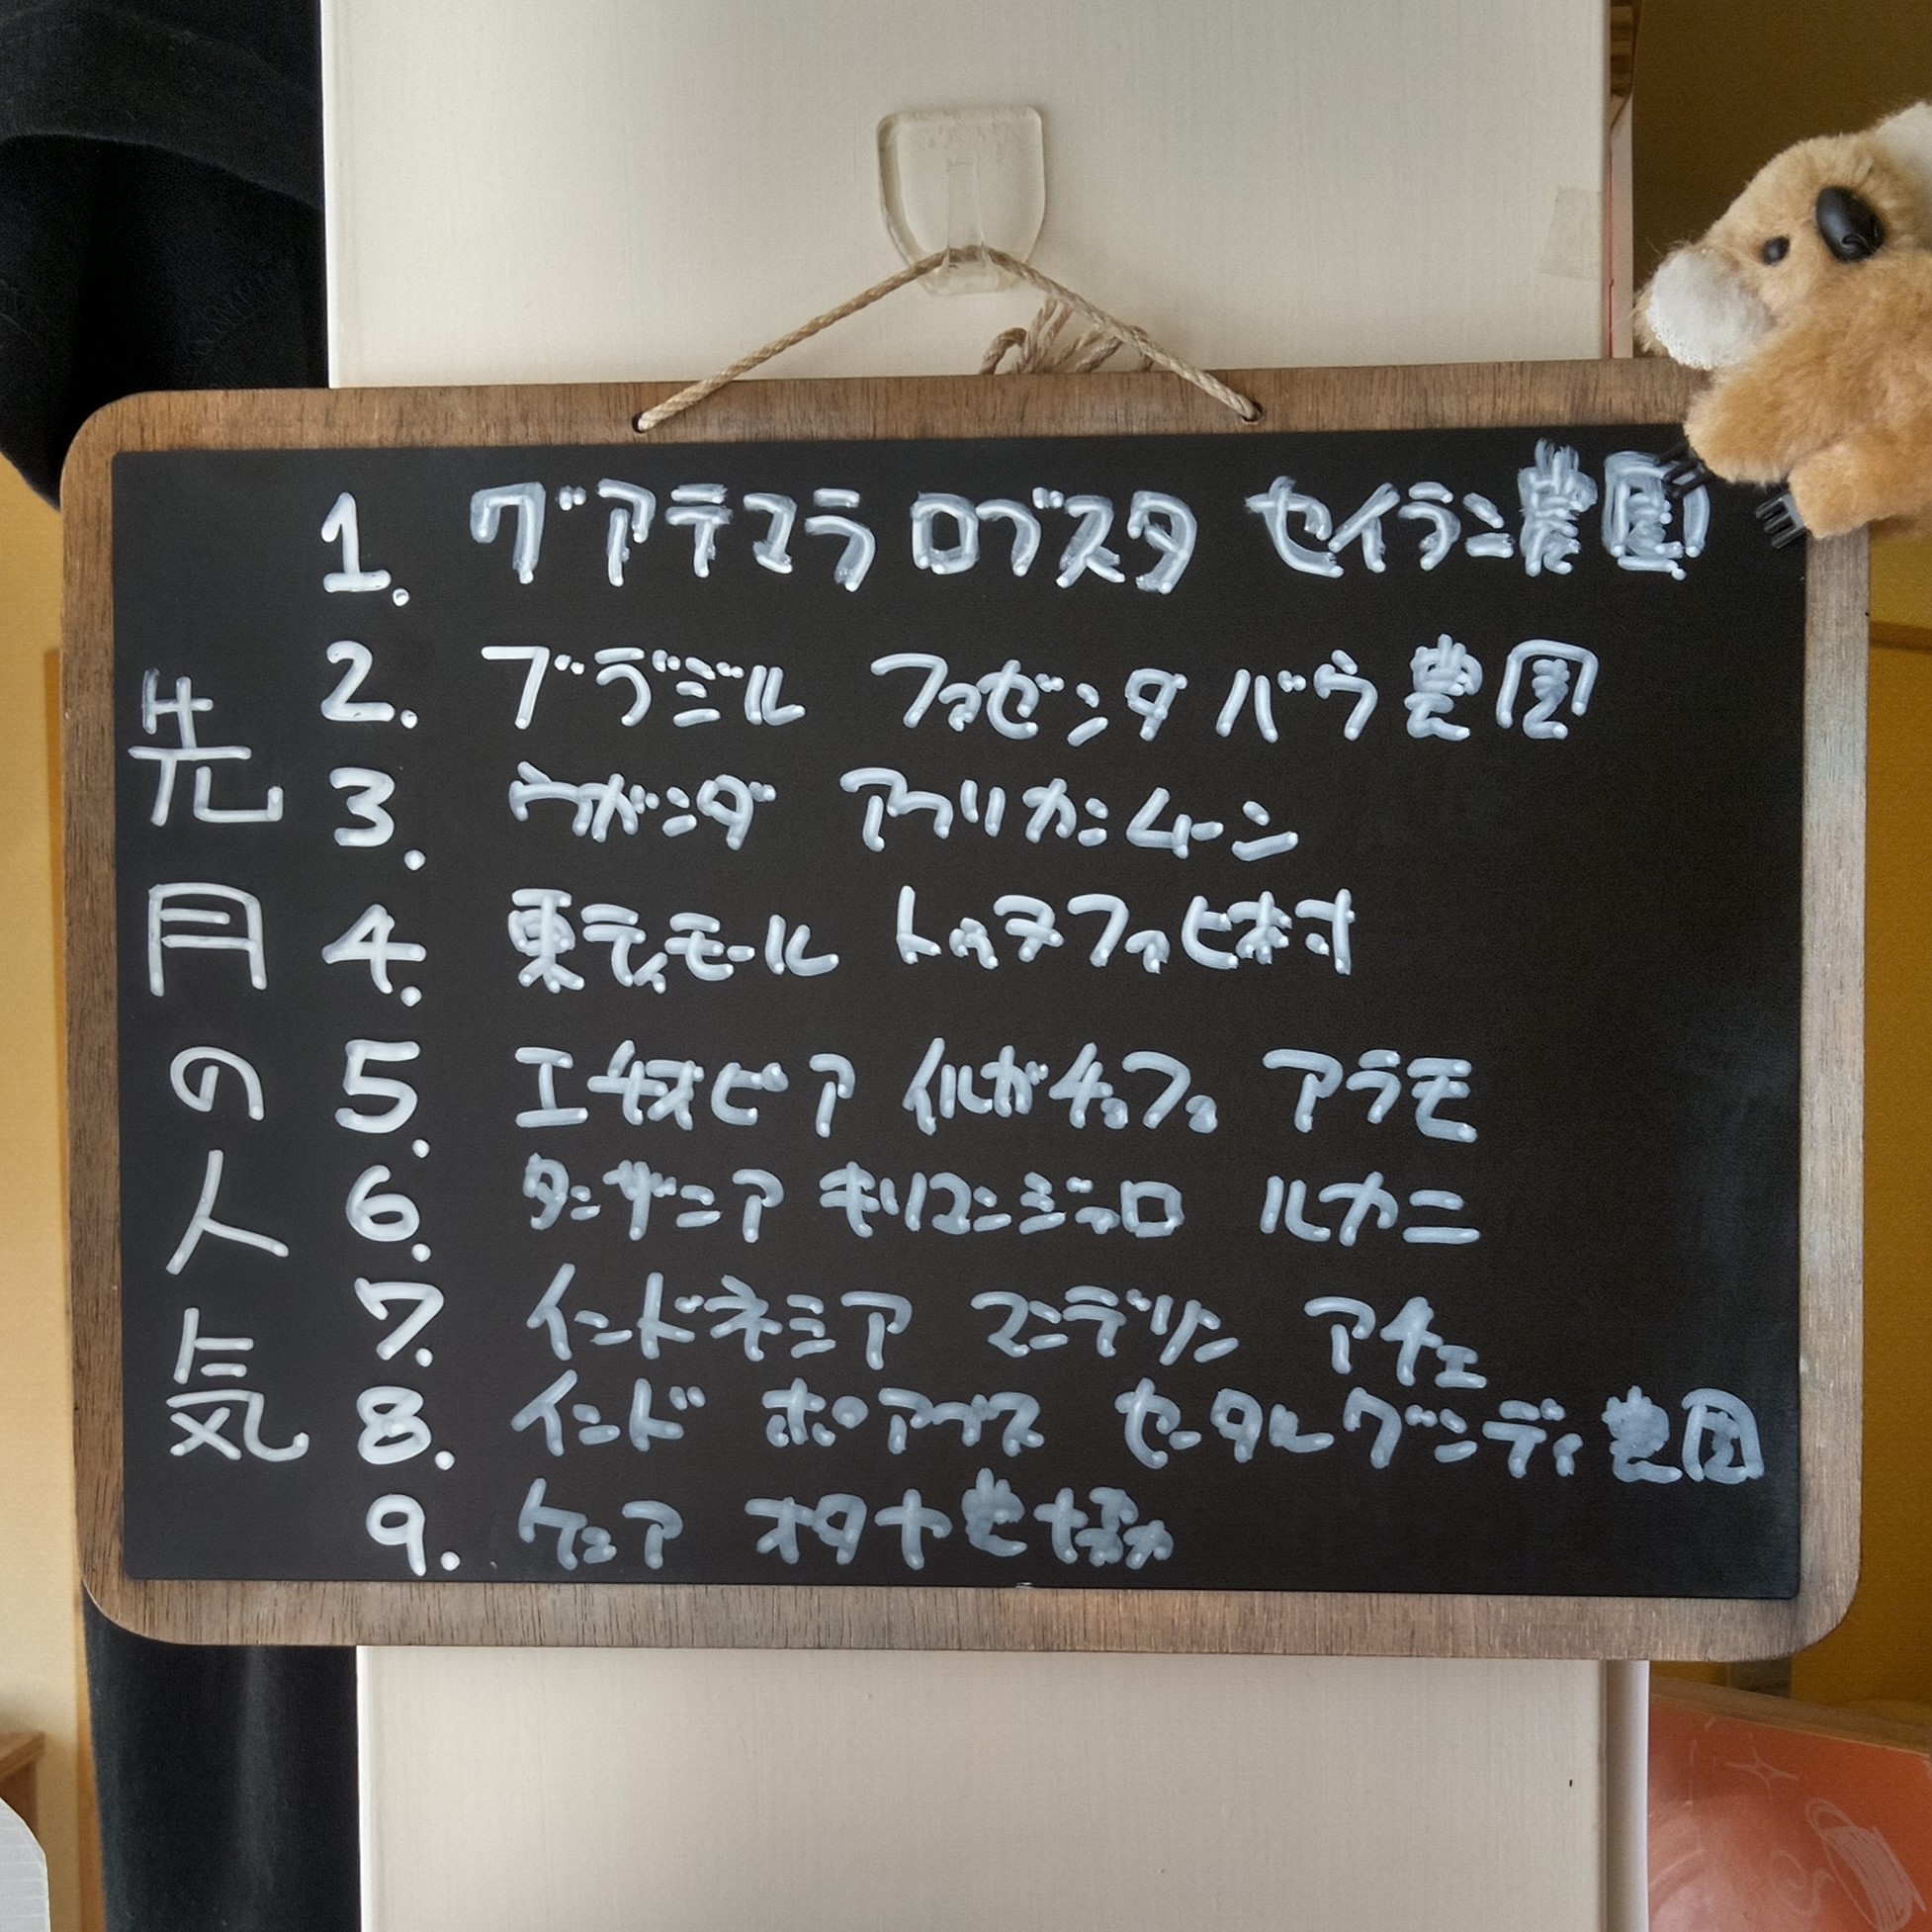 先月の人気
1. グアテマラ ロブスタ セイラン農園
2. ブラジル ファゼンダ バウ農園
3. ウガンダ アフリカンムーン
4. 東ティモール トゥヌファヒ村
5. エチオピア イルガチェフェ アラモ
6. タンザニア キリマンジャロ ルカニ
7. インドネシア マンデリン アチェ
8. インド ポアブス グンディ農園
9. ケニア オタヤ農協